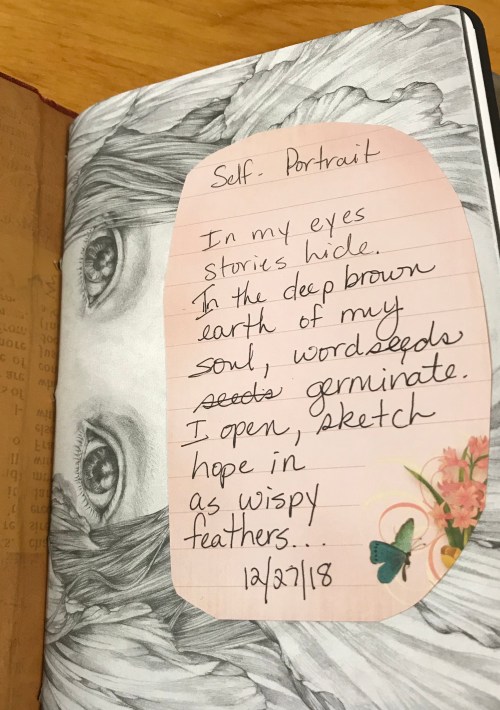 Self-Portrait
In my eyes
stories hide.
In the deep brown
earth of my
soul, wordseeds
seeds germinate.
I open, sketch
hope in
as wispy
feathers...
12/27/18